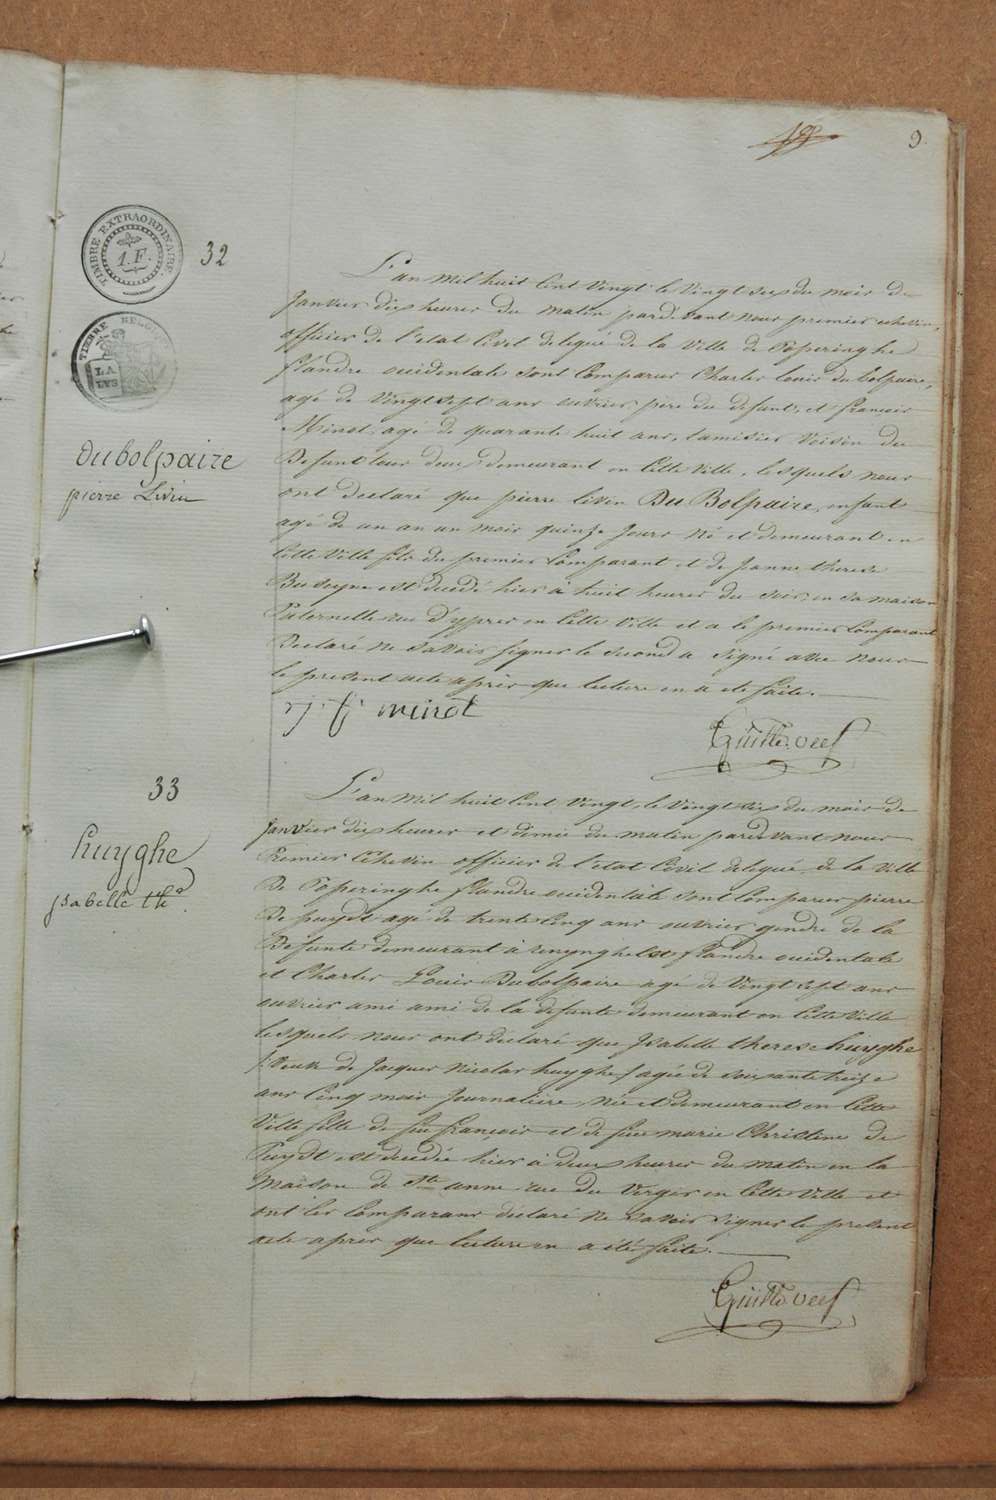 9.
TIMBRE EXTRAORDINAIRE
1.F.
32
L'an mil huit cent vingt le vingt six du mois de
Janvier dix heures du matin pardevant nous premier echevin,
officier de l'etat civil delegué de la ville de Poperinghe
flandre occidentale sont comparus Charles louis dubolpaire,
agé de vingt sept ans ouvrier père du defunt, et françois
Minot, agé de quarante huit ans, tamisier voisin du
Defunt tous deux demeurant en cette ville, lesquels nous
ont declaré que pierre livin Du Bolpaire, enfant
agé de un an un mois quinze jours né et demeurant en
cette ville fils du premier comparant et de jeanne therese
est decedé hier à huit heures du soir, en sa maison
Paternelle rue d'ypres en cette ville et a le premier comparant
Declaré ne savoir signer le second a signé avec nous
le present acte après que lecture en a eté faite.
TIMBRE BELGIQ
LA
LYS
dubolpaire
pierre Livin
j: f: minot
33
huyghe
jsabelle thé
L'an mil huit cent vingt, le vingt six du mois de
Janvier dix heures et demie du matin pardevant nous
Premier Echevin officier de l'etat civil delegué de la ville
De Poperinghe flandre occidentale sont comparus pierre
De puydt agé de trente cinq ans ouvrier gendre de la
Defunte demeurant à renynghelst flandre occidentale
et Charles Louis Dubolpaire agé de vingt sept ans
ouvrier ami ami de la defunte demeurant en cette ville
lesquels nous ont declaré que Jsabelle therese huyghe
veuve de Jacques Nicolas huyghe agée de soixante treize
ans cinq mois Journaliere, née et demeurant en cette
Ville fille de feu françois et de feue marie Christine de
Puydt est decedée hier à deux heures du matin en la
Maison de Ste anne rue du Verger en cette ville et
ont les comparans declaré ne savoir signer le present
acte après que lecture en a été faite.